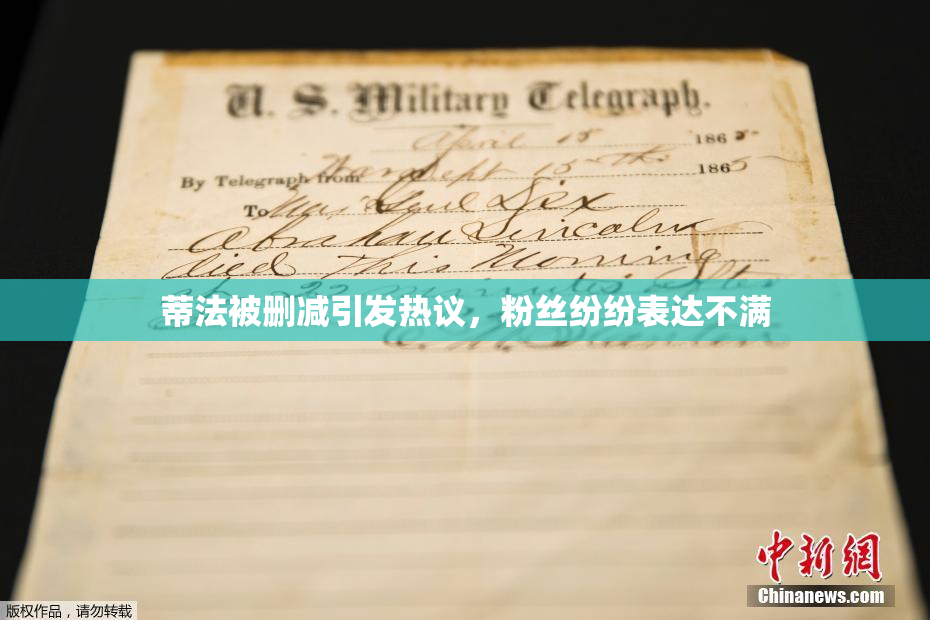 U. S. Military Telegraph.
April 15 1865
By Telegraph from War Dept 15th 1865
To Maj Genl Dix
Abraham Lincoln
died This Morning
at 22 minutes after
蒂法被删减引发热议，粉丝纷纷表达不满
E. M. Stanton
中新网
Chinanews.com
版权作品，请勿转载